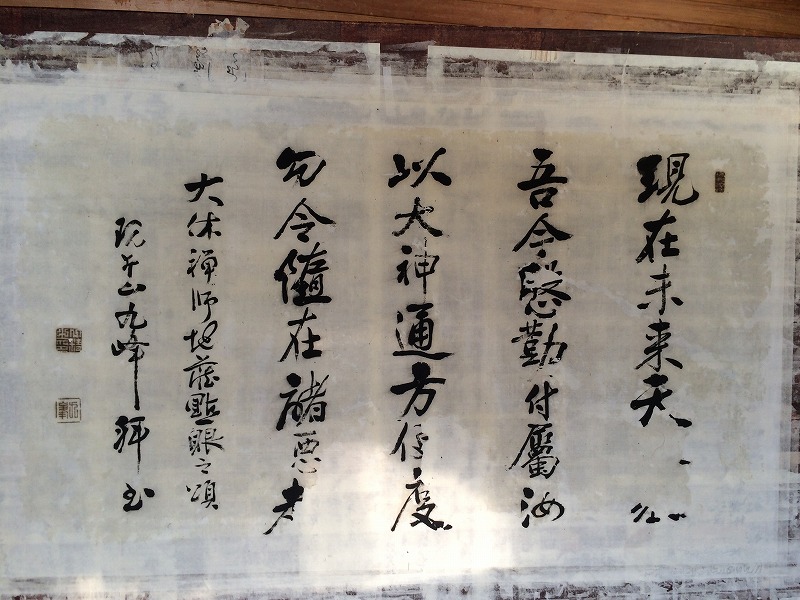 現在未来天人众
吾今慇勤付屬汝
以大神通方便度
勿令墮在諸悪趣
大休禅師地蔵點眼之頌
山九峰拝書